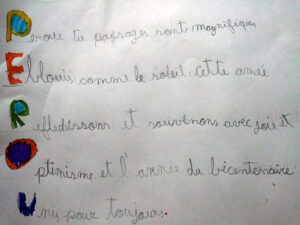 Perou tu paysages sont magnifique,
Eblouis comme le soleil. Cette année
Refledissons et souvenons avec joie et
Optimisme et l'année du bicentenaire
Unis pour toujours.